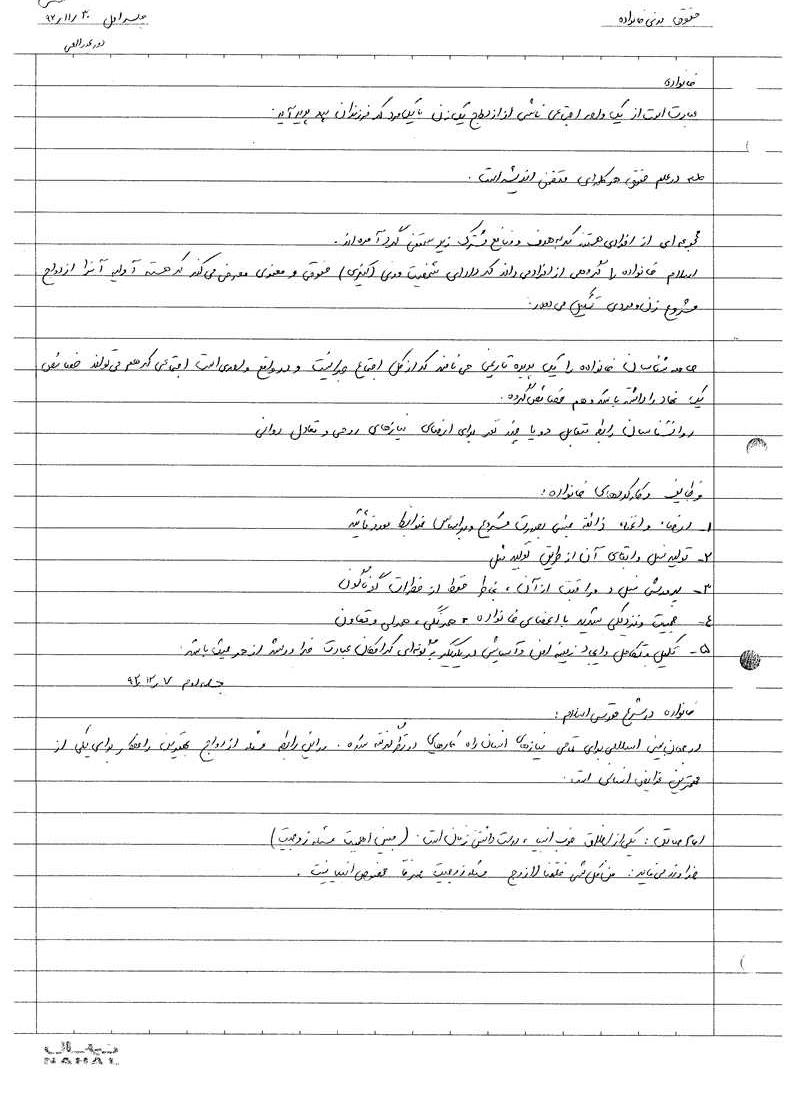 حقوق مدنی خانواده
جلسه اول ۹۲/۱۱/۳۰
خانواده
عبارت است از یک واحد اجتماعی ناشی از ازدواج یک زن با یک مرد که فرزندان پدید آید.
در علم حقوق هر کلمه‌ای متقن اندیشه است.
مجموعه‌ای از افرادی هستند که به هدف و منافع مشترک زیر سقفی گرد آمده‌اند.
اسلام خانواده را گروهی از افراد می‌داند که دارای شخصیت مدنی حقوقی و معنوی معرفی می‌کند که هسته اولیه آنرا ازدواج
مشروع زن و مردی تشکیل می‌دهد.
جامعه شناسان خانواده را یک پدیده تاریخی می‌نامند که از کل اجتماع جدا نیست و در واقع واحدی است اجتماعی که هم می‌تواند خصائص
یک نهاد را داشته باشد و هم خصائص گروه.
روانشناسان رابطه متقابل دو یا چند نفر برای ارضای نیازهای روحی و تعادل روانی
وظایف و کارکردهای خانواده:
۱- ارضاء جنسی بصورت مشروع و براساس ضوابط مورد تأیید
۲- تولید نسل و ابقای آن از طریق تولید مثل
۳- پرورش نسل و مراقبت از آن، بخاطر حفظ از خطرات گوناگون
٤- محبت و نزدیکی شدید با اعضای خانواده، همرنگی، همدلی و تعاون
۵- تکمیل و تکامل و ایجاد زمینه امن و آسایش در یکدیگر به گونه‌ای که امکان عبادت خدا و رشد از هر حیث باشد.
جلسه دوم ۹۲/۱۲/۷
خانواده در شرع مقدس اسلام:
در جهان بینی اسلامی برای تمامی نیازهای انسان راه کارهای در نظر گرفته شده. در این رابطه مسئله ازدواج بهترین راهکار برای یکی از
مهمترین غرایض انسانی است.
امام صادق: یکی از اخلاق خوب انبیاء، دوست داشتن زنان است. (یعنی اهمیت مسئله زوجیت)
خداوند می‌فرماید: من کل شی خلقنا لازوج مسئله زوجیت صرفاً مخصوص انسان نیست.
نهال
NAHAL